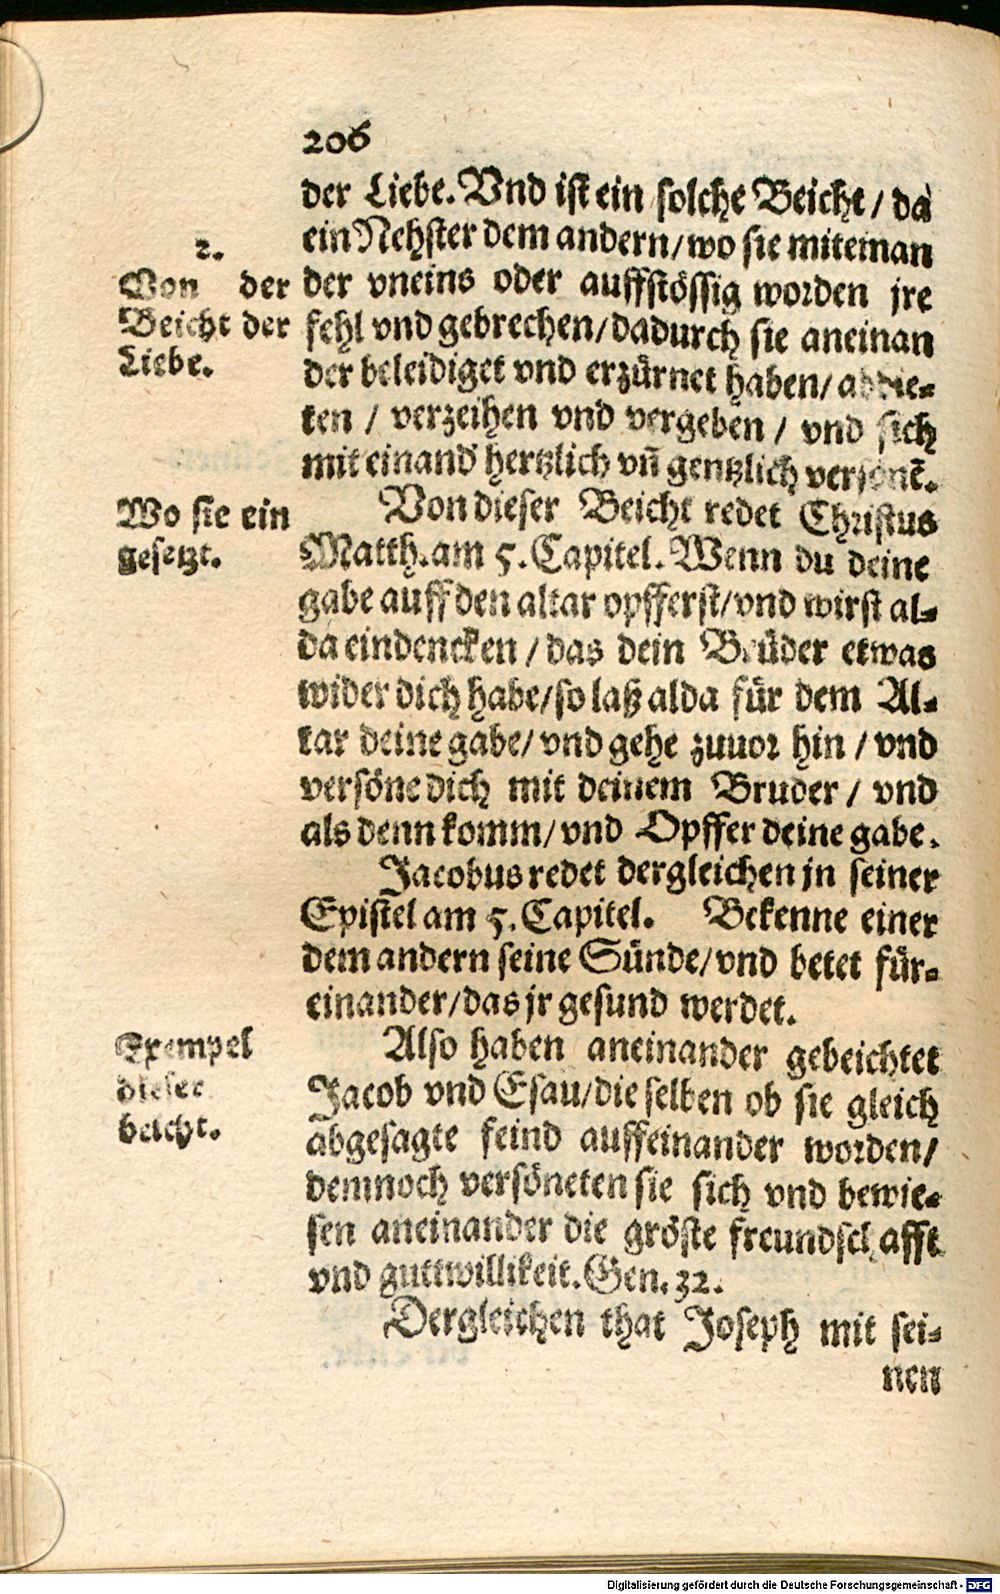 206
der Liebe. Vnd ist ein solche Beicht / da
ein Nehster dem andern / wo sie miteinan
der vneins oder auffstössig worden jre
fehl vnd gebrechen / dadurch sie aneinan
der beleidiget vnd erzürnet haben / abbit-
ten / verzeihen vnd vergeben / vnd sich
mit einand̕ hertzlich vn̄ gentzlich versönē.
2.
Von der
Beicht der
Liebe.
Von dieser Beicht redet Christus
Matth. am 5. Capitel. Wenn du deine
gabe auff den altar opfferst / vnd wirst al-
da eindencken / das dein Brüder etwas
wider dich habe / so laß alda für dem Al-
tar deine gabe / vnd gehe zuuor hin / vnd
versöne dich mit deinem Bruder / vnd
als denn komm / vnd Opffer deine gabe.
Wo sie ein
gesetzt.
Jacobus redet dergleichen jn seiner
Epistel am 5. Capitel. Bekenne einer
dem andern seine Sünde / vnd betet für-
einander / das jr gesund werdet.
Also haben aneinander gebeichtet
Jacob vnd Esau / die selben ob sie gleich
abgesagte feind auffeinander worden /
demnoch versöneten sie sich vnd bewie-
sen aneinander die gröste freundschafft
vnd guttwillikeit. Gen. 32.
Exempel
dieser
beicht.
Dergleichen that Joseph mit sei-
nen
Digitalisierung gefördert durch die Deutsche Forschungsgemeinschaft - DFG